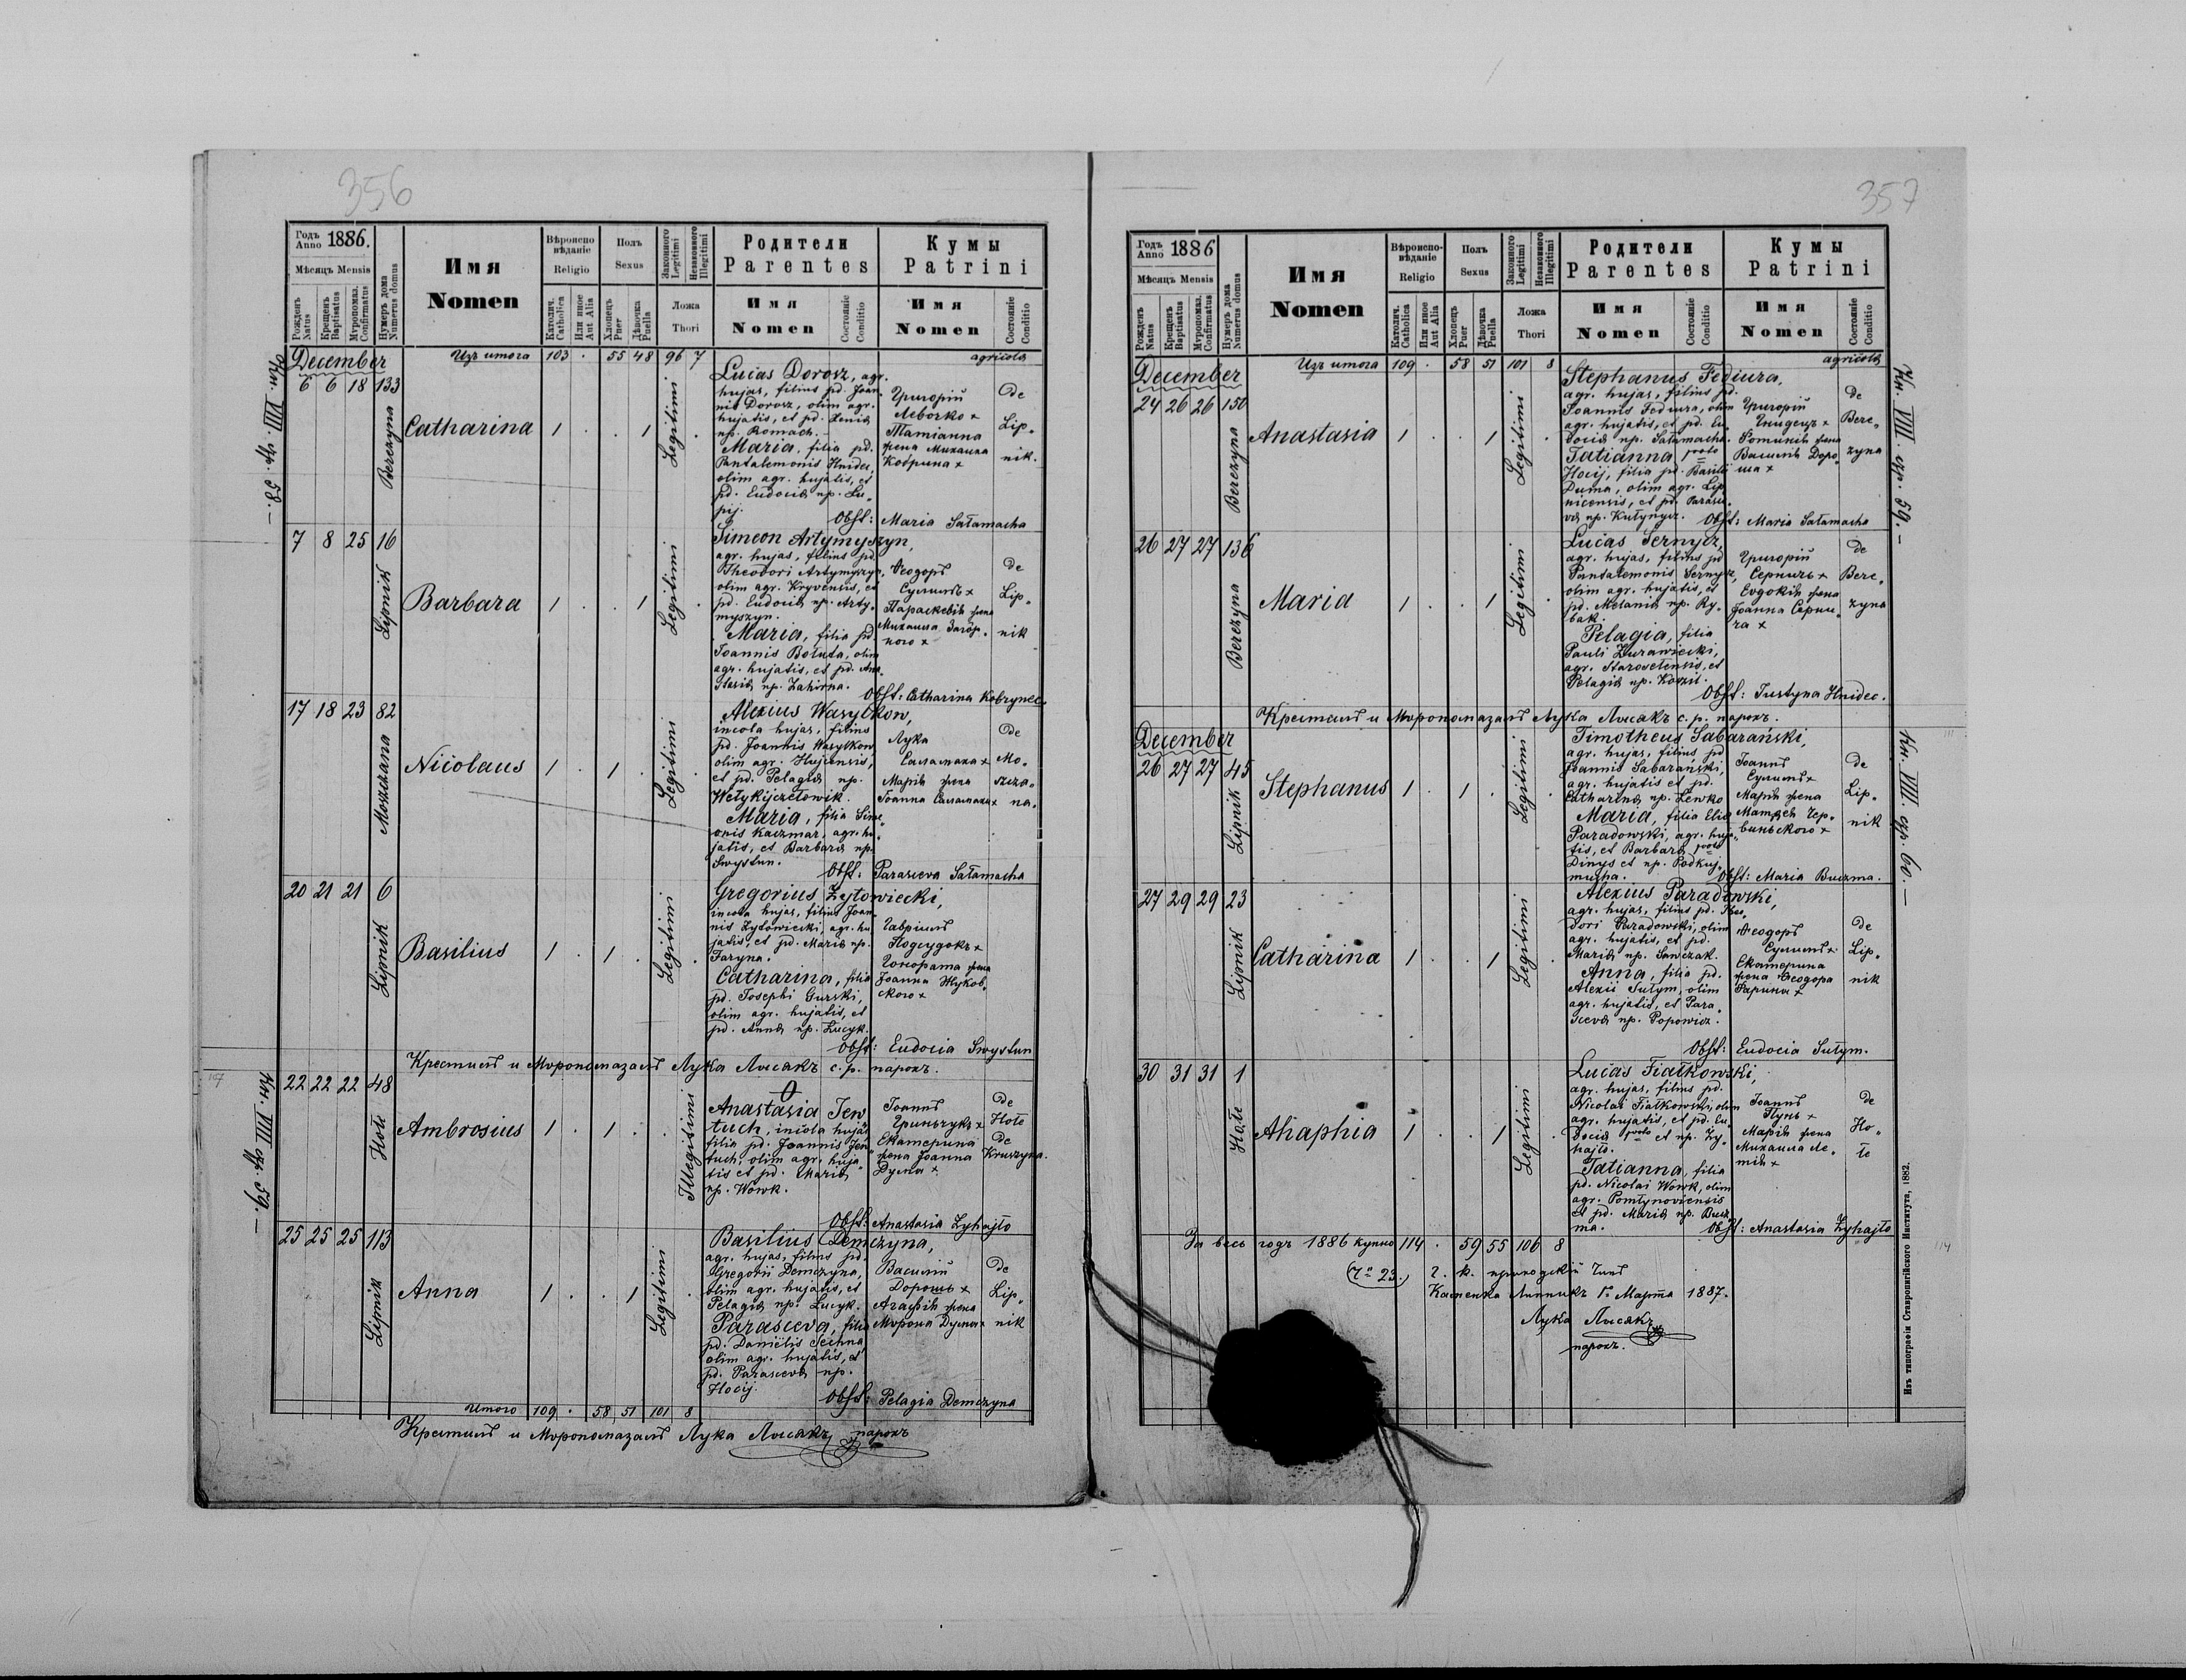 356
Годъ Anno 1886.
Мѣсяцъ Mensis
Рожденъ Natus
Крещенъ Baptisatus
Мѵропомаз. Confirmatus
Нумеръ дома Numerus domus
Имя Nomen
Вѣроисповѣданіе Religio
Католич. Catholica
Или иное Aut Alia
Полъ Sexus
Хлопецъ Puer
Дѣвочка Puella
Законного Legitimi
Незаконного Illegitimi
Ложа Thori
Родители Parentes
Имя Nomen
Состояніе Conditio
Кумы Patrini
Имя Nomen
Состояніе Conditio
December
Изъ итога 103 . 55 48 96 7
agricolæ
6 6 18 133
Berezyna
Catharina 1 . . 1
Legitimi
Lucas Dorosz, agr.
hujas, filius pd. Joan
nis Dorosz, olim agr.
hujatis, et pd. Xeniæ
np. Romach.
Maria, filia pd.
Pantalemonis Hnidec,
olim agr. hujatis, et
pd. Eudociæ np. Łu„
pij.
Григорій
Левочко +
Татіанна
жена Михаила
Кобрина +
De
Lip„
nik.
Obst: Maria Sałamacha
7 8 25 16
Lipnik
Barbara 1 . . 1 .
Legitimi
Simeon Artymyszyn,
agr. hujas, filius pd.
Theodori Artymyszyn,
olim agr. Kryvensis, et
pd. Eudociæ np. Arty„
myszyn.
Maria, filia pd.
Joannis Bołuta, olim
agr. hujatis, et pd. Ana„
stasiæ np. Zahirna.
Ѳеодоръ
Сулимъ +
Параскевія жена
Михаила Загор„
ного +
De
Lip„
nik
Obst: Catharina Kobrynec.
17 18 23 82
Moszczana
Nicolaus 1 . 1 .
Legitimi
Alexius Wasylkow,
incola hujas, filius
pd. Joannis Wasylkow
olim agr. Hujcensis,
et pd. Pelagiæ np.
Wełykijczełowik.
Maria, filia Sime„
onis Kaczmar, agr. hu„
jatis, et Barbaræ np.
Swystun.
Лука
Саламаха +
Марія жена
Іоанна Саламаха +
De
Mo„
szcza„
na.
Obst: Parasceva Sałamacha
20 21 21 6
Lipnik
Basilius 1 . 1 .
Legitimi
Gregorius Żytowiecki,
incola hujas, filius Joan„
nis Żytowiecki, agr. hu
jatis, et pd. Mariæ np.
Faryna.
Catharina, filia
pd. Josephi Gurski,
olim agr. hujatis, et
pd. Annæ np. Łucyk.
Гавріилъ
Подсудокъ +
Гонората жена
Іоанна Жуков„
ского +
Obst: Eudocia Swystun
Крестилъ и Мѵропомазалъ Лука Лисакъ с. р. парохъ.
22 22 22 48
Hołe
Ambrosius 1 . 1 .
Illegitimi
0
Anastasia Jew
tuch, incola hujas
filia pd. Joannis Jew„
tuch, olim agr. huja„
tis et pd. Mariæ
np. Wowk.
Іоаннъ
Гриньчукъ +
Екатерина
жена Іоанна
Дума +
De
Hołe
de
Kruszyna.
Obst: Anastasia Zyhajło
25 25 25 113
Lipnik
Anna 1 . . 1 .
Legitimi
Basilius Demczyna,
agr. hujas, filius pd.
Gregorii Demczyna,
olim agr. hujatis, et
Pelagiæ np. Łucyk.
Parasceva, filia
pd. Danielis Sechna
olim agr. hujatis, et
pd. Parascevæ np.
Hocij.
Василій
Дорошъ +
Агафія жена
Мирона Дума +
De
Lip„
nik
Obst: Pelagia Demczyna
Итого 109 . 58 51 101 8
Крестилъ и Мѵропомазалъ Лука Лисакъ парохъ
Кн. VIII стр. 58.—
Кн. VIII стр. 59.—
357
Годъ Anno 1886
Мѣсяцъ Mensis
Рожденъ Natus
Крещенъ Baptisatus
Мѵропомаз. Confirmatus
Нумеръ дома Numerus domus
Имя Nomen
Вѣроисповѣданіе Religio
Католич. Catholica
Или иное Aut Alia
Полъ Sexus
Хлопецъ Puer
Дѣвочка Puella
Законного Legitimi
Незаконного Illegitimi
Ложа Thori
Родители Parentes
Имя Nomen
Состояніе Conditio
Кумы Patrini
Имя Nomen
Состояніе Conditio
December
Изъ итога 109 . 58 51 101 8
agricolæ
24 26 26 150
Berezyna
Anastasia 1 . . 1 .
Legitimi
Stephanus Fediura,
agr. hujas, filius pd.
Joannis Fediura, olim
agr. hujatis, et pd. Eu„
dociæ np. Sałamacha.
Tatianna proto
Hocij, filia pd. Basilii
Duma, olim agr. Lip
nicensis, et pd. Parasce„
væ np. Kułynycz.
Григорій
Гнидецъ +
жена
Василія Доро„
ша +
De
Bere„
zyna
Obst: Maria Sałamacha
26 27 27 136
Berezyna
Maria 1 . . 1 .
Legitimi
Lucas Sernycz,
agr. hujas, filius pd
Pantalemonis Sernycz,
olim agr. hujatis, et
pd. Melaniæ np. Ry„
bak.
Pelagia, filia
Pauli Żurawiecki,
agr. Staroselensis, et
Pelagiæ np. Kozżit.
Григорій
Серничъ +
Евдокія жена
Іоанна Серни„
ча +
De
Bere„
zyna
Obst: Justyna Hnidec.
Крестилъ и Мѵропомазалъ Лука Лисакъ с. р. парохъ.
December
26 27 27 45
Lipnik
Stephanus 1 . 1 .
Legitimi
Timotheus Sabarański,
agr. hujas, filius pd
Joannis Sabarański,
agr. hujatis et pd.
Catharinæ np. Lewko
Maria, filia Eliæ
Paradowski, agr. huja„
tis, et Barbaræ proto
Dinys et np. Podkuj„
mucha.
Іоаннъ
Сулимъ +
Марія жена
Матѳея Чер„
виньского +
De
Lip„
nik
Obst: Maria Buczma.
27 29 29 23
Lipnik
Catharina 1 . . 1 .
Legitimi
Alexius Paradowski,
agr. hujas, filius pd. Theo„
dori Paradowski, olim
agr. hujatis, et pd.
Mariæ np. Sawczak.
Anna, filia pd.
Alexii Sułym, olim
agr. hujatis, et Para„
scevæ np. Popowicz.
Ѳеодоръ
Сулимъ +
Екатерина
жена Ѳеодора
Фарина +
De
Lip„
nik
Obst: Eudocia Sułym.
30 31 31 1
Hołe
Ahaphia 1 . . 1 .
Legitimi
Lucas Fiałkowski,
agr. hujas, filius pd.
Nicolai Fiałkowski, olim
agr. hujatis, et pd. Eu„
dociæ proto et np. Zy„
hajło.
Tatianna, filia
pd. Nicolai Wowk, olim
agr. Pomłynoviensis
et pd. Mariæ np. Bucz
ma.
Іоаннъ
Марія жена
Михаила Ле„
міх +
De
Ho„
łe
Obst: Anastasia Zyhajło
За весь годъ 1886 купно 114 . 59 55 106 8
(Ч. 23.) г. к. приходскій Чинъ
Каменка Липникъ 1го Марта 1887.
Лука Лисакъ
парохъ.
Кн. VIII. стр. 59.—
Кн. VIII. стр. 60.—
114
Изъ типографіи Ставропигійского Института, 1882.